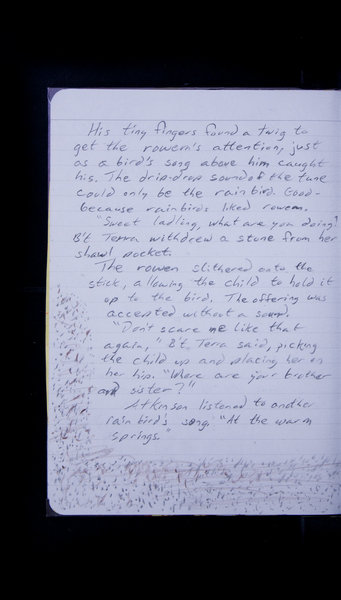 His tiny fingers found a twig to
get the rowem's attention, just
as a bird's song above him caught
his. The drip-drop sound of the tune
could only be the rainbird. Good-
because rainbirds liked rowem.
"Sweet ladling, what are you doing?"
B't Terra withdrew a stone from her
shawl pocket.
The rowen slithered onto the
stick, allowing the child to hold it
up to the bird. The offering was
accepted without a sound.
"Don't scare me like that
again," B't. Terra said, picking
the child up and placing her on
her hip. "Where are your brother
and sister?"
Atkinson listened to another
rainbird's song. "At the warm
springs."